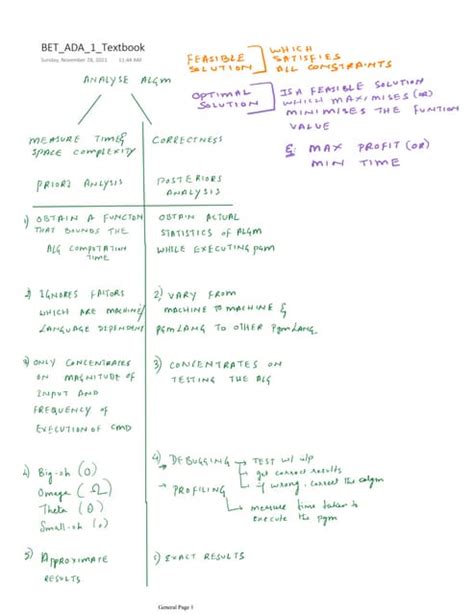 BET_ADA_1_Textbook
Sunday, November 28, 2021 11:44 AM
FEASIBLE SOLUTION
WHICH SATISFIES ALL CONSTRAINTS
ANALYSE ALGM
OPTIMAL SOLUTION
IS A FEASIBLE SOLUTION
WHICH MAXIMISES (OR)
MINIMISES THE FUNTION
VALUE
MAX PROFIT (OR)
MIN TIME
MEASURE TIME &
SPACE COMPLEXITY
CORRECTNESS
PRIORI ANALYSIS
POSTERIORS
ANALYSIS
1) OBTAIN A FUNCTON
THAT BOUNDS THE
ALG COMPUTATION
TIME
OBTAIN ACTUAL
STATISTICS OF ALGM
WHILE EXECUTING PGM
2) IGNORES FACTORS
WHICH ARE MACHINE/
LANGUAGE DEPENDENT
2) VARY FROM
MACHINE TO MACHINE &
PGM LANG TO OTHER PGM LANG.
3) ONLY CONCENTRATES
ON MAGNITUDE OF
INPUT AND
FREQUENCY OF
EXECUTION OF CMD
3) CONCENTRATES ON
TESTING THE ALG
4) Big-oh (O)
Omega (Ω)
Theta (Θ)
Small-oh (o)
4) DEBUGGING → TEST w/ i/p
→ get correct results
→ if wrong - correct the algm
PROFILING
→ measure time taken to
execute the pgm
5) APPROXIMATE
RESULTS
5) EXACT RESULTS
General Page 1